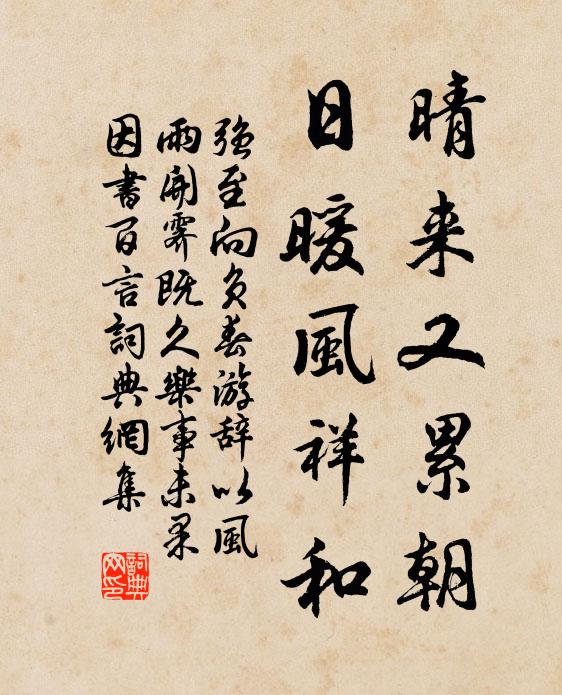 晴来又累朝
日暖風祥和
強至向负春游辞以風
雨開霁既久樂事未果
因書百言詞典網集
詞典网印